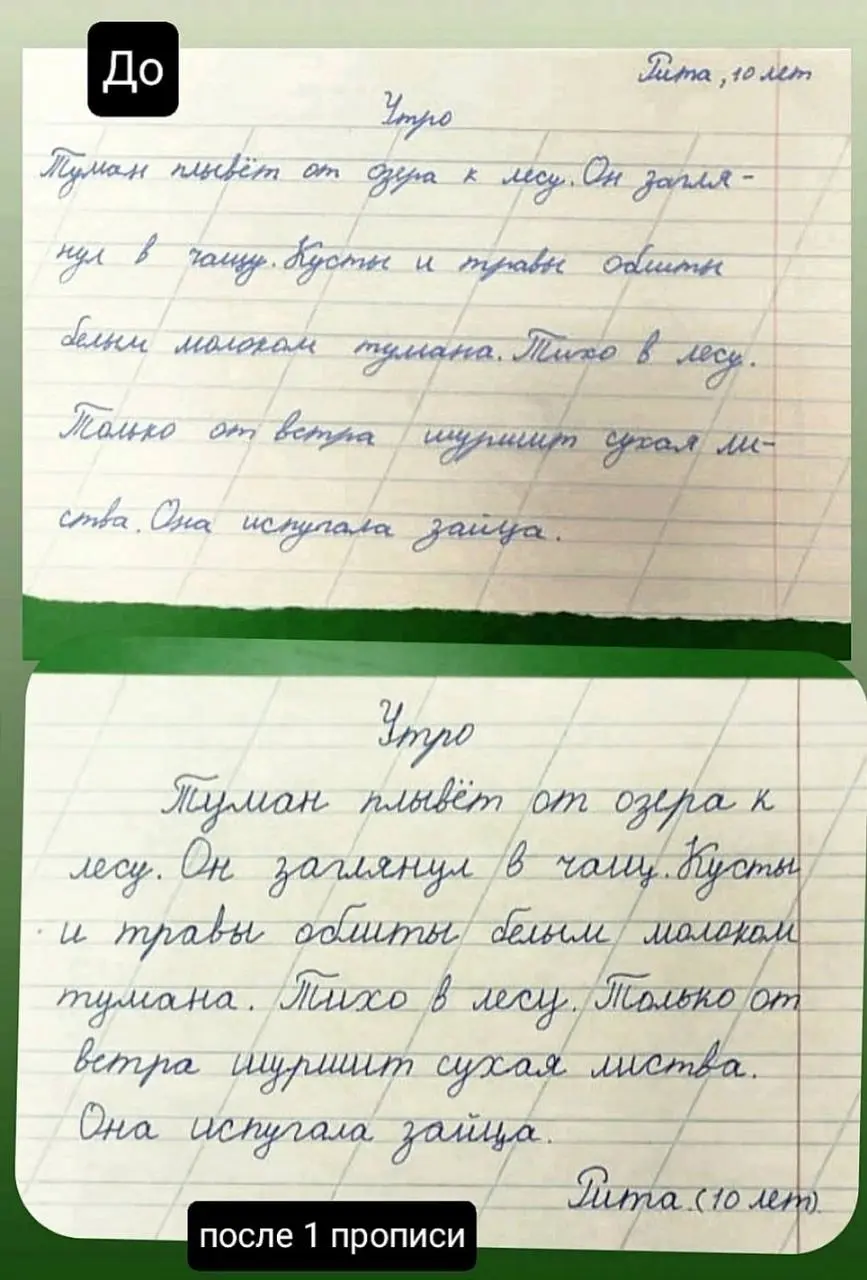 До
Рита, 10 лет
Утро
Туман плывёт от озера к лесу. Он загля-
нул в чащу. Кусты и травы облиты
белым молоком тумана. Тихо в лесу.
Только от ветра шуршит сухая ли-
ства. Она испугала зайца.
Утро
Туман плывёт от озера к
лесу. Он заглянул в чащу. Кусты
и травы облиты белым молоком
тумана. Тихо в лесу. Только от
ветра шуршит сухая листва.
Она испугала зайца.
Рита (10 лет)
после 1 прописи